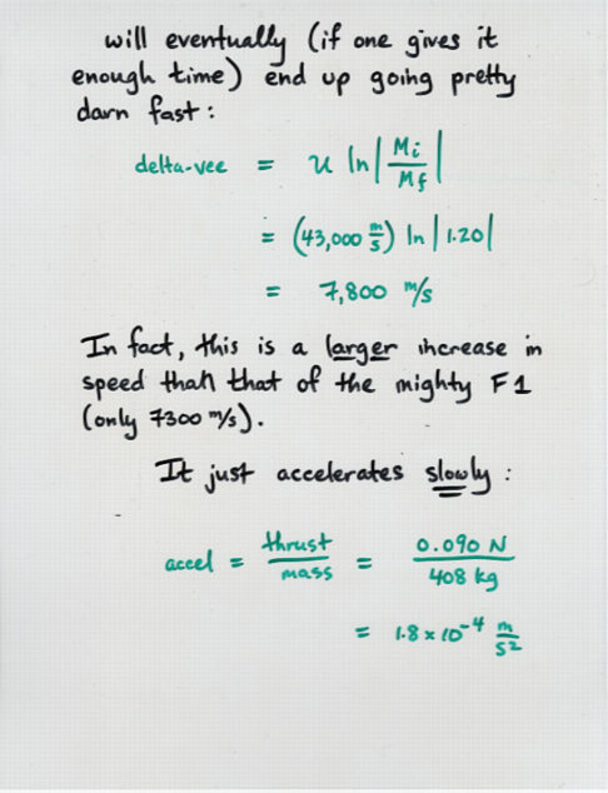 will eventually (if one gives it
enough time) end up going pretty
darn fast:
delta-vee = u ln|Mi/Mf|
= (43,000 m/s) ln|1.20|
= 7,800 m/s
In fact, this is a larger increase in
speed than that of the mighty F1
(only 7300 m/s).
It just accelerates slowly:
accel = thrust/mass = 0.090 N/408 kg
= 1.8 × 10⁻⁴ m/s²